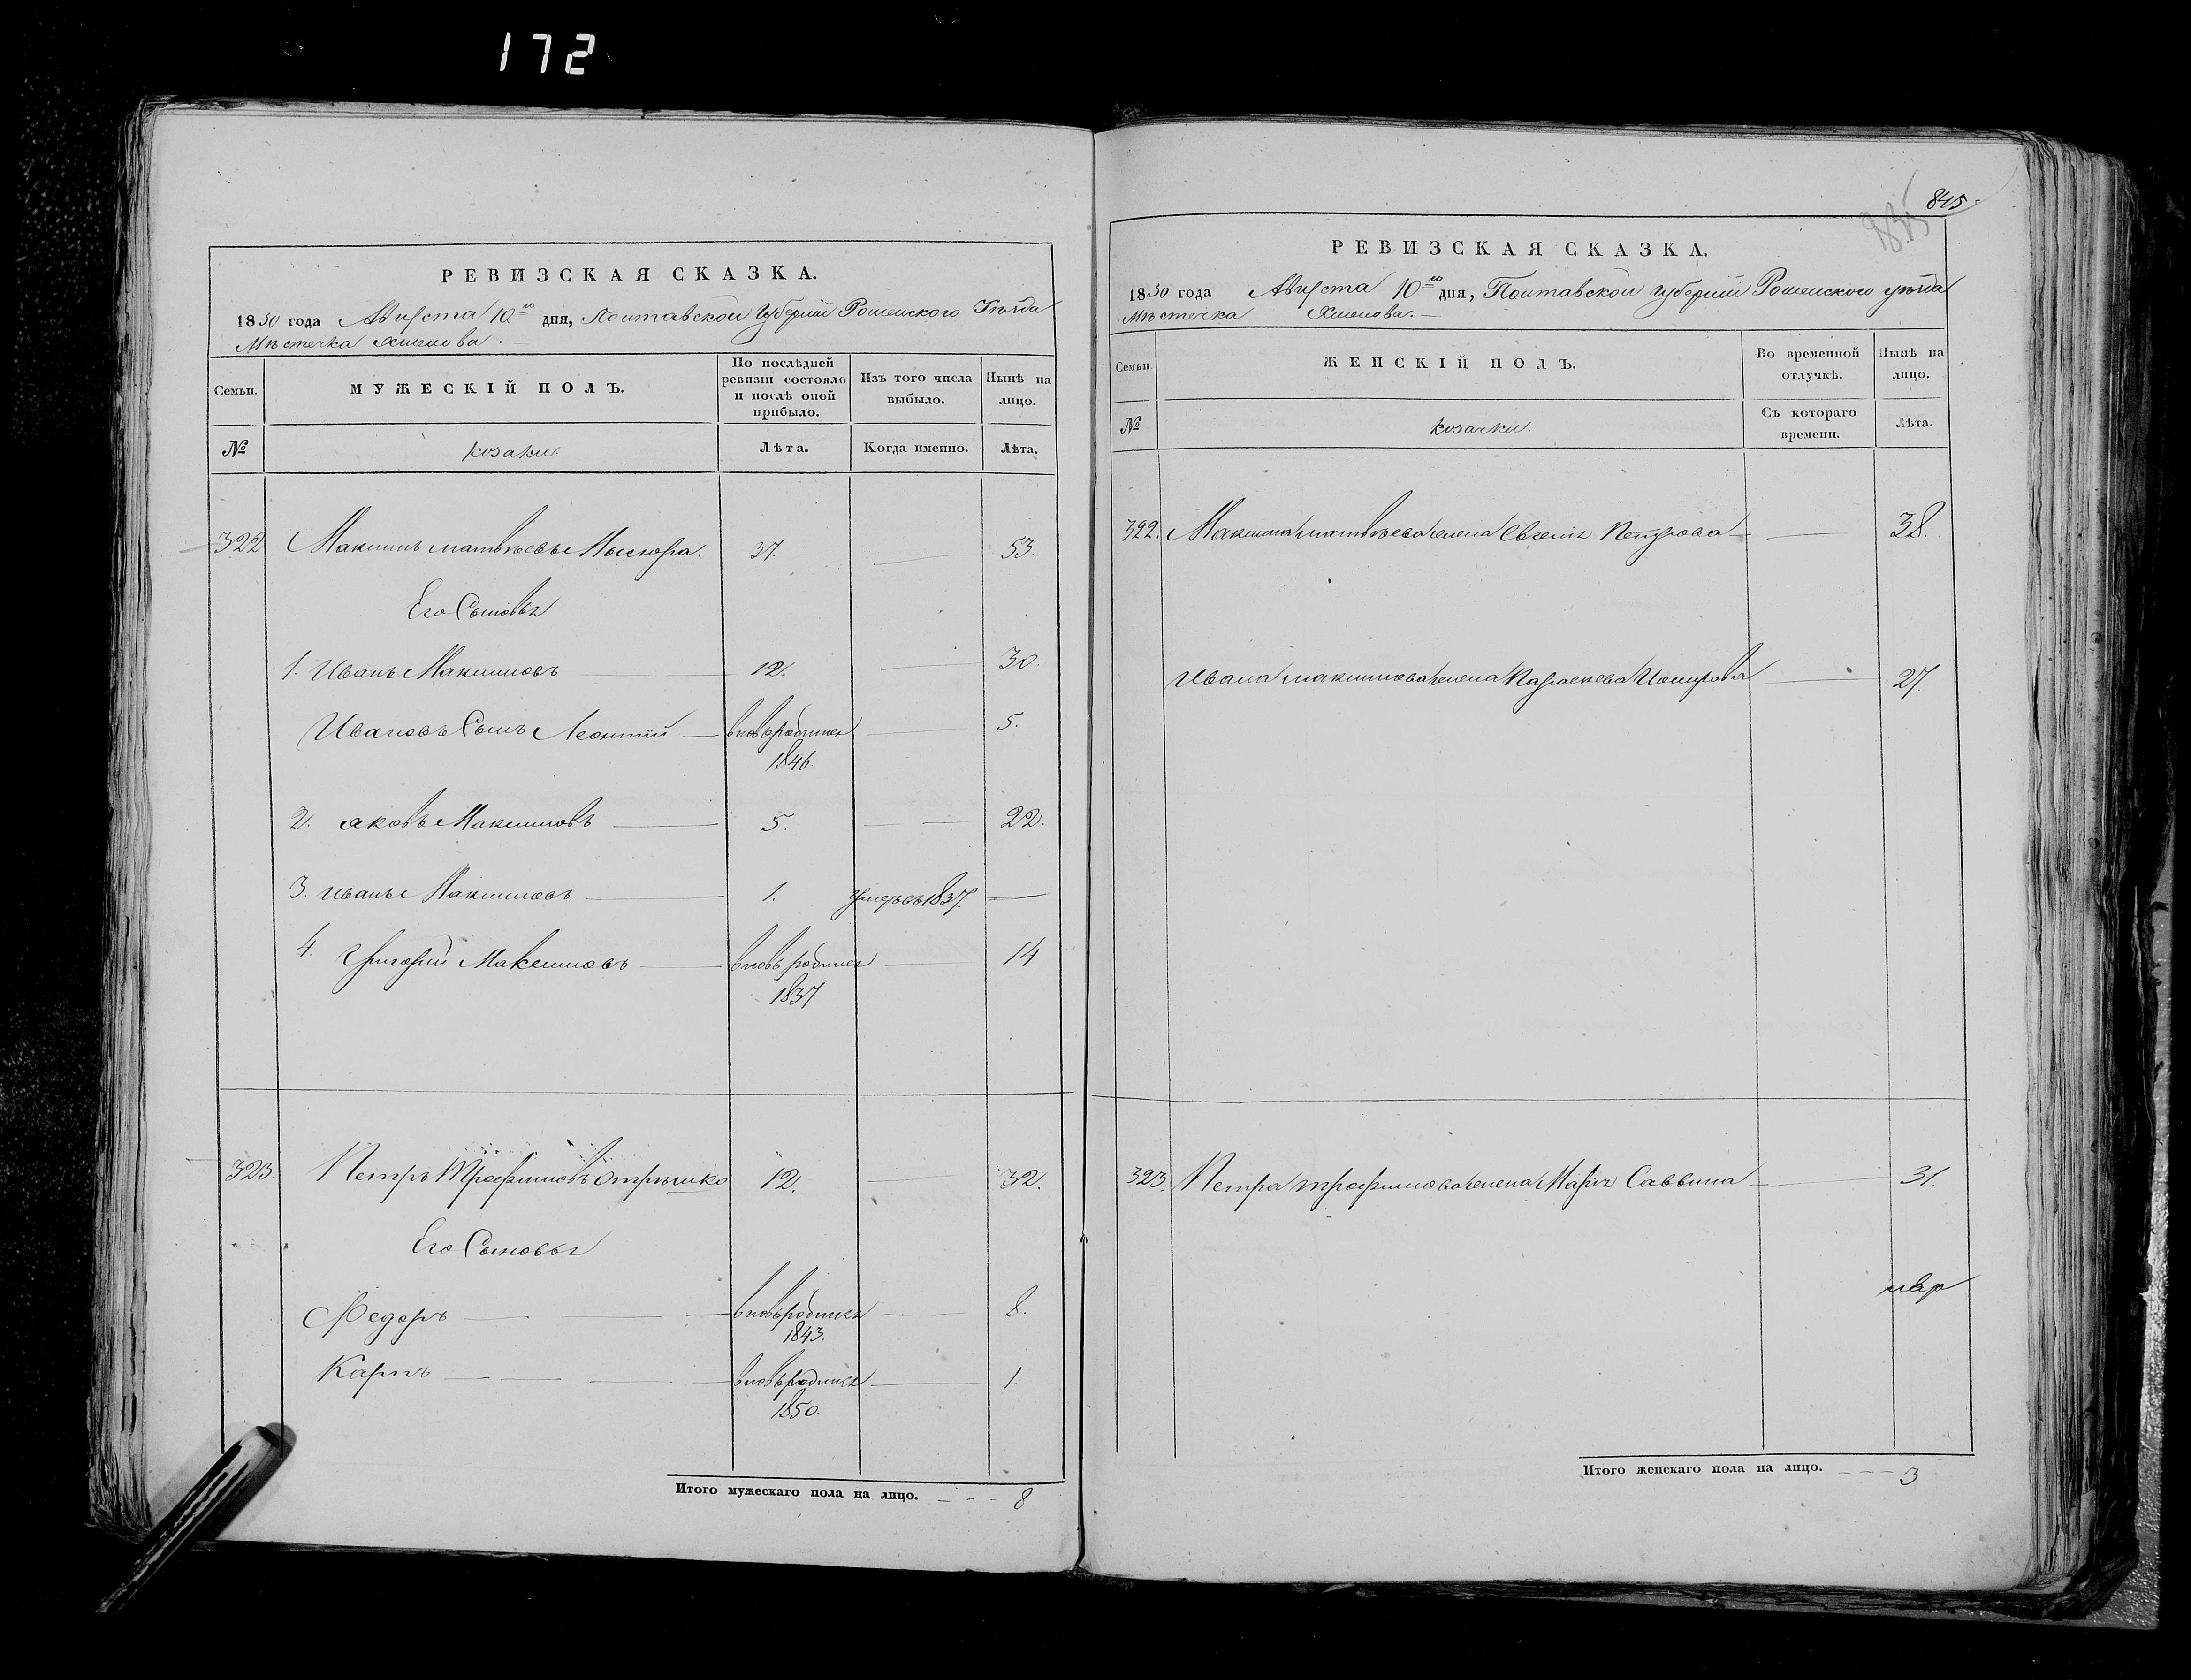 172
РЕВИЗСКАЯ СКАЗКА.
1850 года Августа 10го дня, Полтавской Губернiи Роменского Уѣзда
Мѣстечка Хмелова.
Семьи.
МУЖЕСКІЙ ПОЛЪ.
По послѣдней ревизіи состояло и послѣ оной прибыло.
Изъ того числа выбыло.
Нынѣ на лицо.
№
козаки.
Лѣта.
Когда именно.
Лѣта.
322 Максимъ Матвѣевъ 37. 53.
Его Сыновья
1. Иванъ Максимовъ 12. 30.
Ивановъ Сынъ Леонтій вновьродился 5.
1846.
2. Яковъ Максимовъ 5. 22.
3. Иванъ Максимовъ 1. умеръ въ 1837.
4. Григорій Максимовъ вновь родился 14
1837.
323. Петръ Трофимовъ 12. 32.
Его Сыновья
Федоръ вновьродился 8.
1843.
Карпъ вновьродился 1.
1850.
Итого мужескаго пола на лицо. 8
845
РЕВИЗСКАЯ СКАЗКА.
1850 года Августа 10го дня, Полтавской Губерніи Роменского уѣзда
Мѣстечка Хмелова.
Семьи.
ЖЕНСКІЙ ПОЛЪ.
Во временной отлучкѣ.
Нынѣ на лицо.
№
козачки.
Съ котораго времени.
Лѣта.
322. Максима Матвѣева жена Евгенія Петрова 38.
Ивана Максимова жена Параскева 27.
323. Петра Трофимова жена Марія Саввина 31.
Итого женскаго пола на лицо. 3